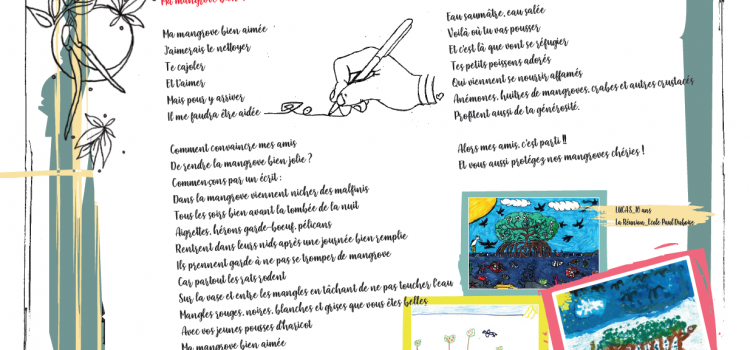 Ma mangrove bien
Ma mangrove bien aimée
J'aimerais te nettoyer
Te cajoler
Et t'aimer
Mais pour y arriver
Il me faudra être aidée
Comment convaincre mes amis
De rendre la mangrove bien jolie ?
Commençons par un écrit :
Dans la mangrove viennent nicher des malfinis
Tous les soirs bien avant la tombée de la nuit
Aigrettes, hérons garde-boeuf, pélicans
Rentrent dans leurs nids après une journée bien remplie
Ils prennent garde à ne pas se tromper de mangrove
Car partout les rats rodent
Sur la vase et entre les mangles en tâchant de ne pas toucher l'eau
Mangles rouges, noires, blanches et grises que vous êtes belles
Avec vos jeunes pousses d'haricot
Ma mangrove bien aimée
Eau saumâtre, eau salée
Voilà où tu vas pousser
Et c'est là que vont se réfugier
Tes petits poissons adorés
Qui viennent se nourrir affamés
Anémones, huîtres de mangroves, crabes et autres crustacés
Profitent aussi de ta générosité.
Alors mes amis, c'est parti !!
Et vous aussi protégez nos mangroves chéries !
LUCAS, 10 ans
La Réunion, Ecole Paul Dubois